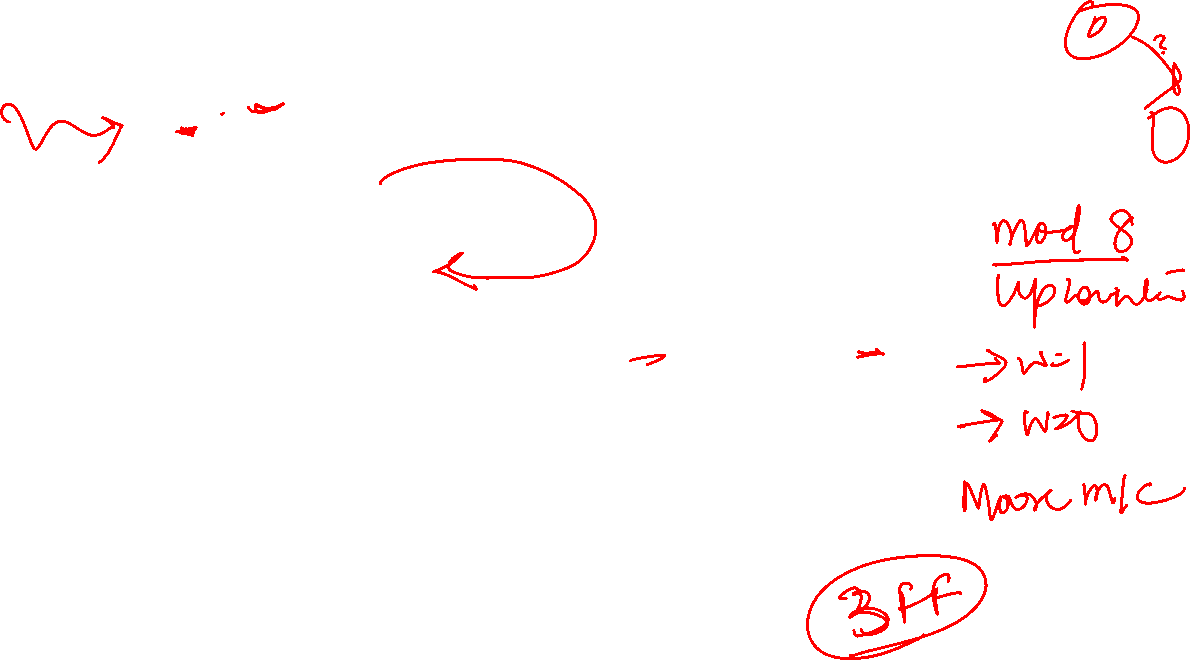 0
?
mod 8
Upcounter
→ w=1
→ w=0
Moore m/c
3ff